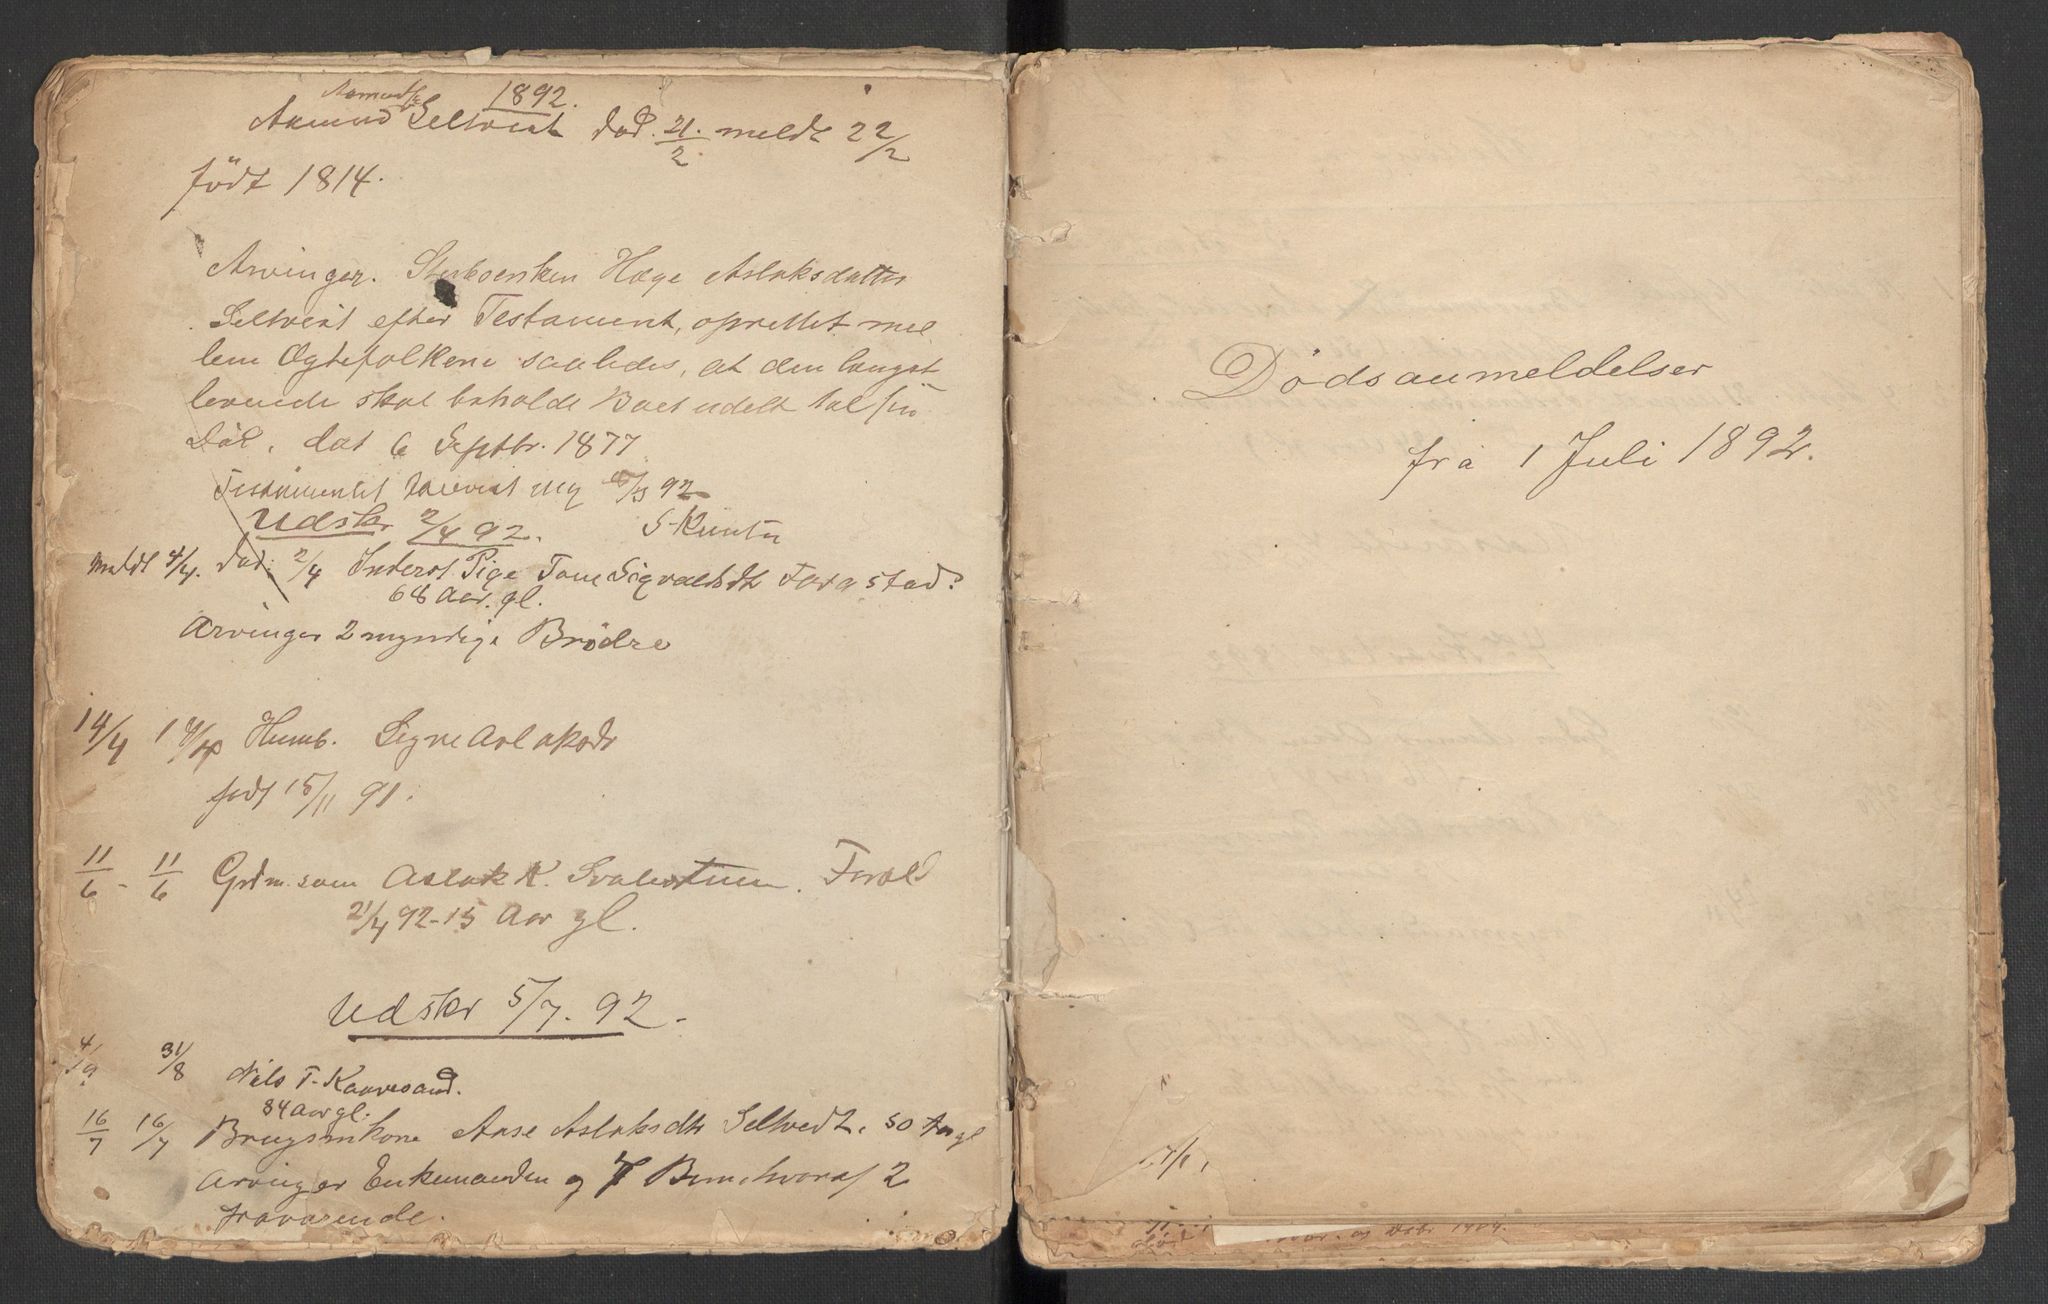 1892.
Aamund Seltveit död. 21/2 meldt 22/2
född 1814.
Arvinger. Sterboenken Hæge Aslaksdatter
Seltveit efter Testament, oprettet mel
lem Ægtefolkene saaledes, at den længst
levende skal beholde Boet udelt til sin
Död, dat 6 Septbr. 1877
Testamentet forevist mig 92
Udskr 2/4 92.
Meldt 4/4. död 2/4 Inderst Pige Tone Sigvaldsdtr
68 Aar. gl.
Arvinger 2 myndige Brödre
14/4 Humb. Signe Aslaksdr
född 15/11 91.
11/6 - 11/6 Grdm. søn Aslak K. Svalestuen. Forold
21/4 92 - 15 Aar gl.
Udskr 5/7. 92.
4/9 31/8 Nils T. Kaavesand.
84 Aar gl.
16/7 16/7 Brugsmkone Aase Aslaksdtr Seltvedt. 50 Aar gl
Arvinger Enkemanden og 7 Börn hvoraf 2
fraværende.
Dödsanmeldelser
fra 1 Juli 1892.